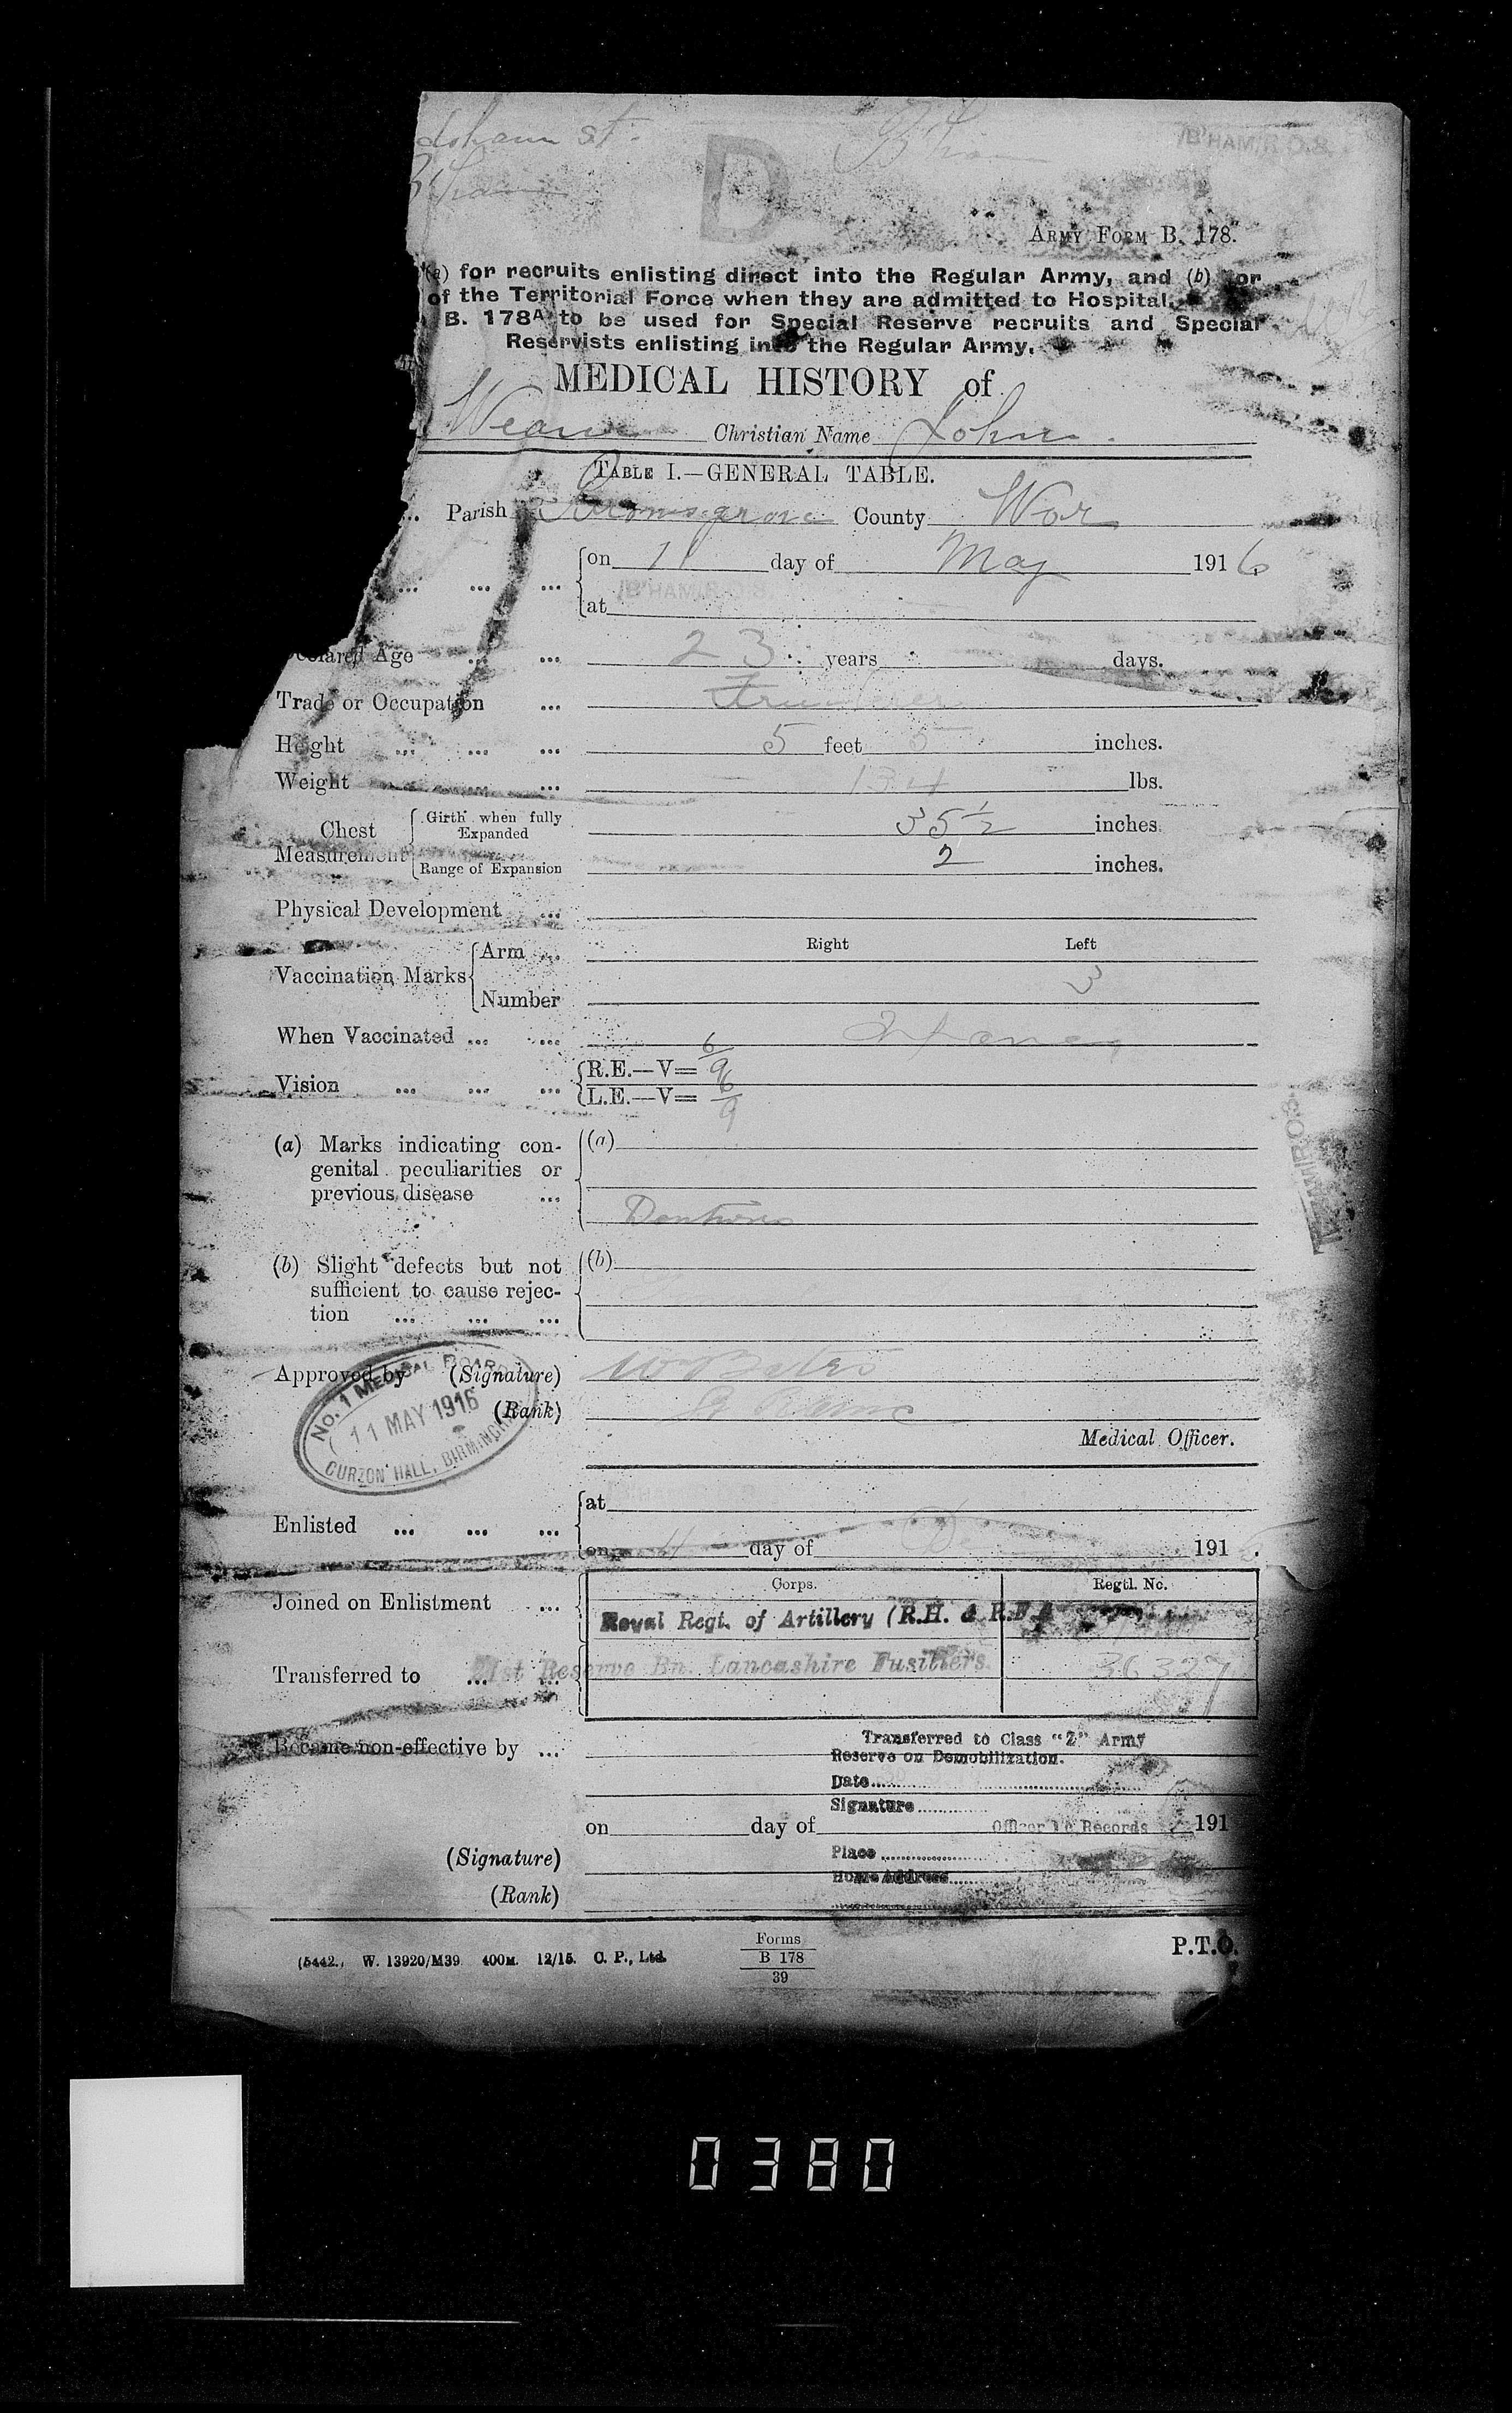 St.
D
B'ham
B'HAM R.O.S.
ARMY FORM B. 178.
(a) for recruits enlisting direct into the Regular Army, and (b) for
of the Territorial Force when they are admitted to Hospital.
B. 178A to be used for Special Reserve recruits and Special
Reservists enlisting into the Regular Army.
MEDICAL HISTORY of
Christian Name John
TABLE I.—GENERAL TABLE.
... Parish Bromsgrove County Wor
... ... ... on 11 day of May 1916
at B'HAM R.O.S.
Declared Age ... ... 23 years days.
Trade or Occupation ...
Height ... ... ... 5 feet 5 inches.
Weight ... ... 134 lbs.
Chest Measurement Girth when fully Expanded 35 1/2 inches.
Range of Expansion 2 inches.
Physical Development ...
Right Left
Vaccination Marks Arm ...
Number 3
When Vaccinated ... ... Infancy
Vision ... ... ... R.E.—V= 6/9
L.E.—V= 6/9
(a) Marks indicating con- (a)
genital peculiarities or
previous disease ...
Dentures
(b) Slight defects but not (b)
sufficient to cause rejec-
tion ... ... ...
Approved by (Signature)
(Rank)
No. 1 MEDICAL BOARD
11 MAY 1916
CURZON HALL, BIRMINGHAM
Medical Officer.
Enlisted ... ... ... at
on 11 day of 191 .
Corps. Regtl. No.
Joined on Enlistment ... Royal Regt. of Artillery (R.H. & R.F.A
Transferred to ... ... 21st Reserve Bn. Lancashire Fusiliers. 36327
Became non-effective by ...
Transferred to Class "Z" Army
Reserve on Demobilization.
Date
Signature
on day of 191
Officer i/c Records
(Signature)
Place
Home Address
(Rank)
(5442.) W. 13920/M39 400M. 12/15. C. P., Ltd.
Forms
B 178
39
P.T.O.
0380